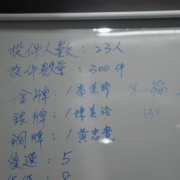 投件人數：23人
投件數量：300件
金牌：1李
銀牌：1陳
銅牌：1黃忠
優選：5
：8
第一輪
120